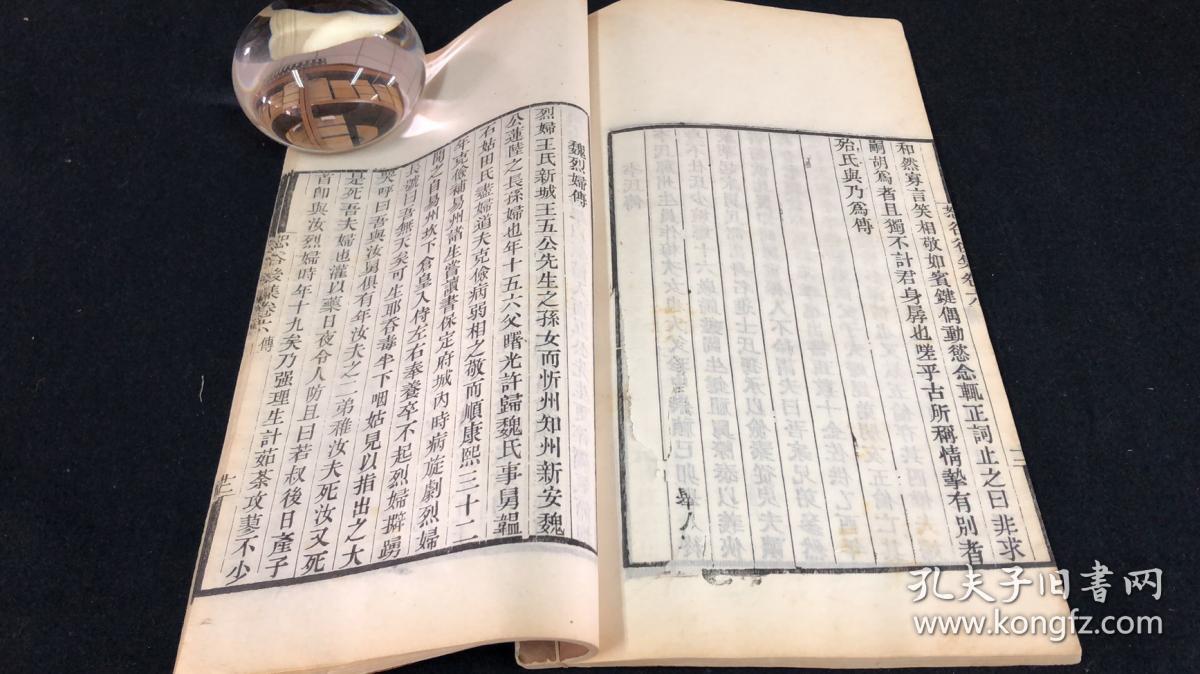 和然寡言笑相敬如賓鍵偶動慾念輒正詞止之曰非求
嗣胡為者且獨不計君身孱也嗟乎古所稱情摯有別者
殆氏與乃為傳
魏烈婦傳
烈婦王氏新城王五公先生之孫女而忻州知州新安魏
公蓮陸之長孫婦也年十五六父曙光許歸魏氏事舅韞
石姑田氏盡婦道夫克儉病弱相之敬而順康熙三十二
年克儉補易州諸生嘗讀書保定府城內時病旋劇烈婦
聞之自易州坎下倉皇入侍左右奉養卒不起烈婦擗踴
長號曰吾無天矣可生耶吞毒半下咽姑見以指出之大
哭呼曰吾與汝舅俱有年汝夫之二弟稚汝夫死汝又死
是死吾夫婦也灌以藥日夜令人防且曰若叔後日產子
首卽與汝烈婦時年十九矣乃强理生計茹荼攻蓼不少
恕谷後集卷六 傳
孔夫子旧书网
www.kongfz.com